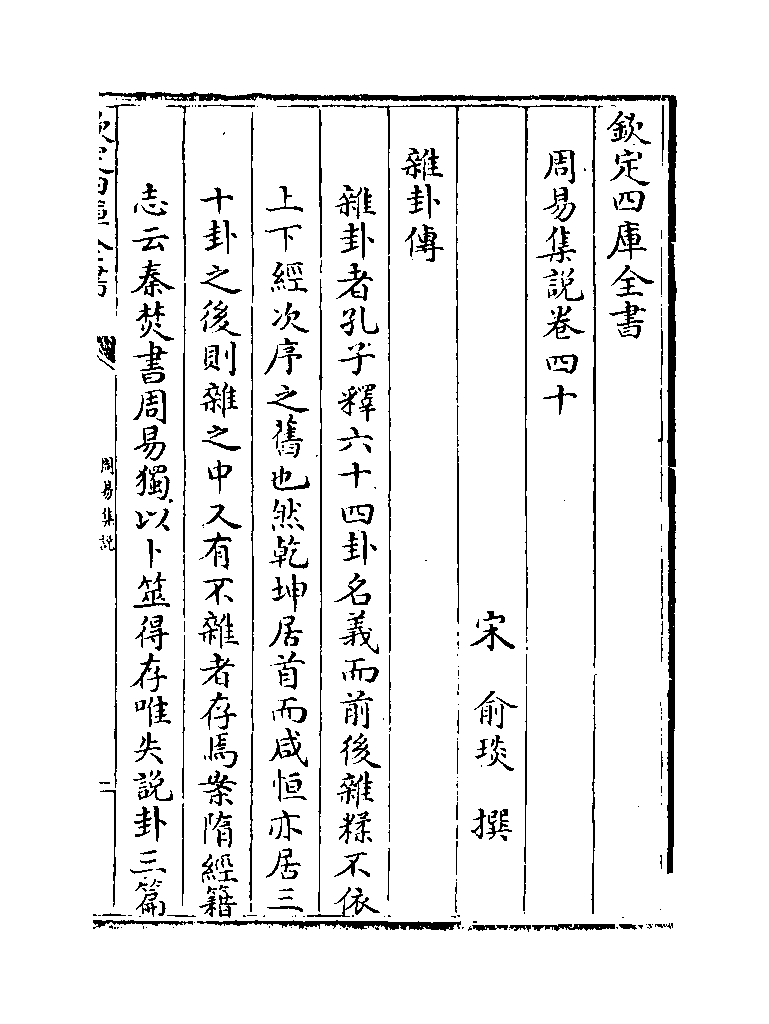 欽定四庫全書
周易集說卷四十
宋 俞琰 撰
雜卦傳
雜卦者孔子釋六十四卦名義而前後雜糅不依
上下經次序之舊也然乾坤居首而咸恒亦居三
十卦之後則雜之中又有不雜者存焉案隋經籍
志云秦焚書周易獨以卜筮得存唯失說卦三篇
欽定四庫全書
周易集說